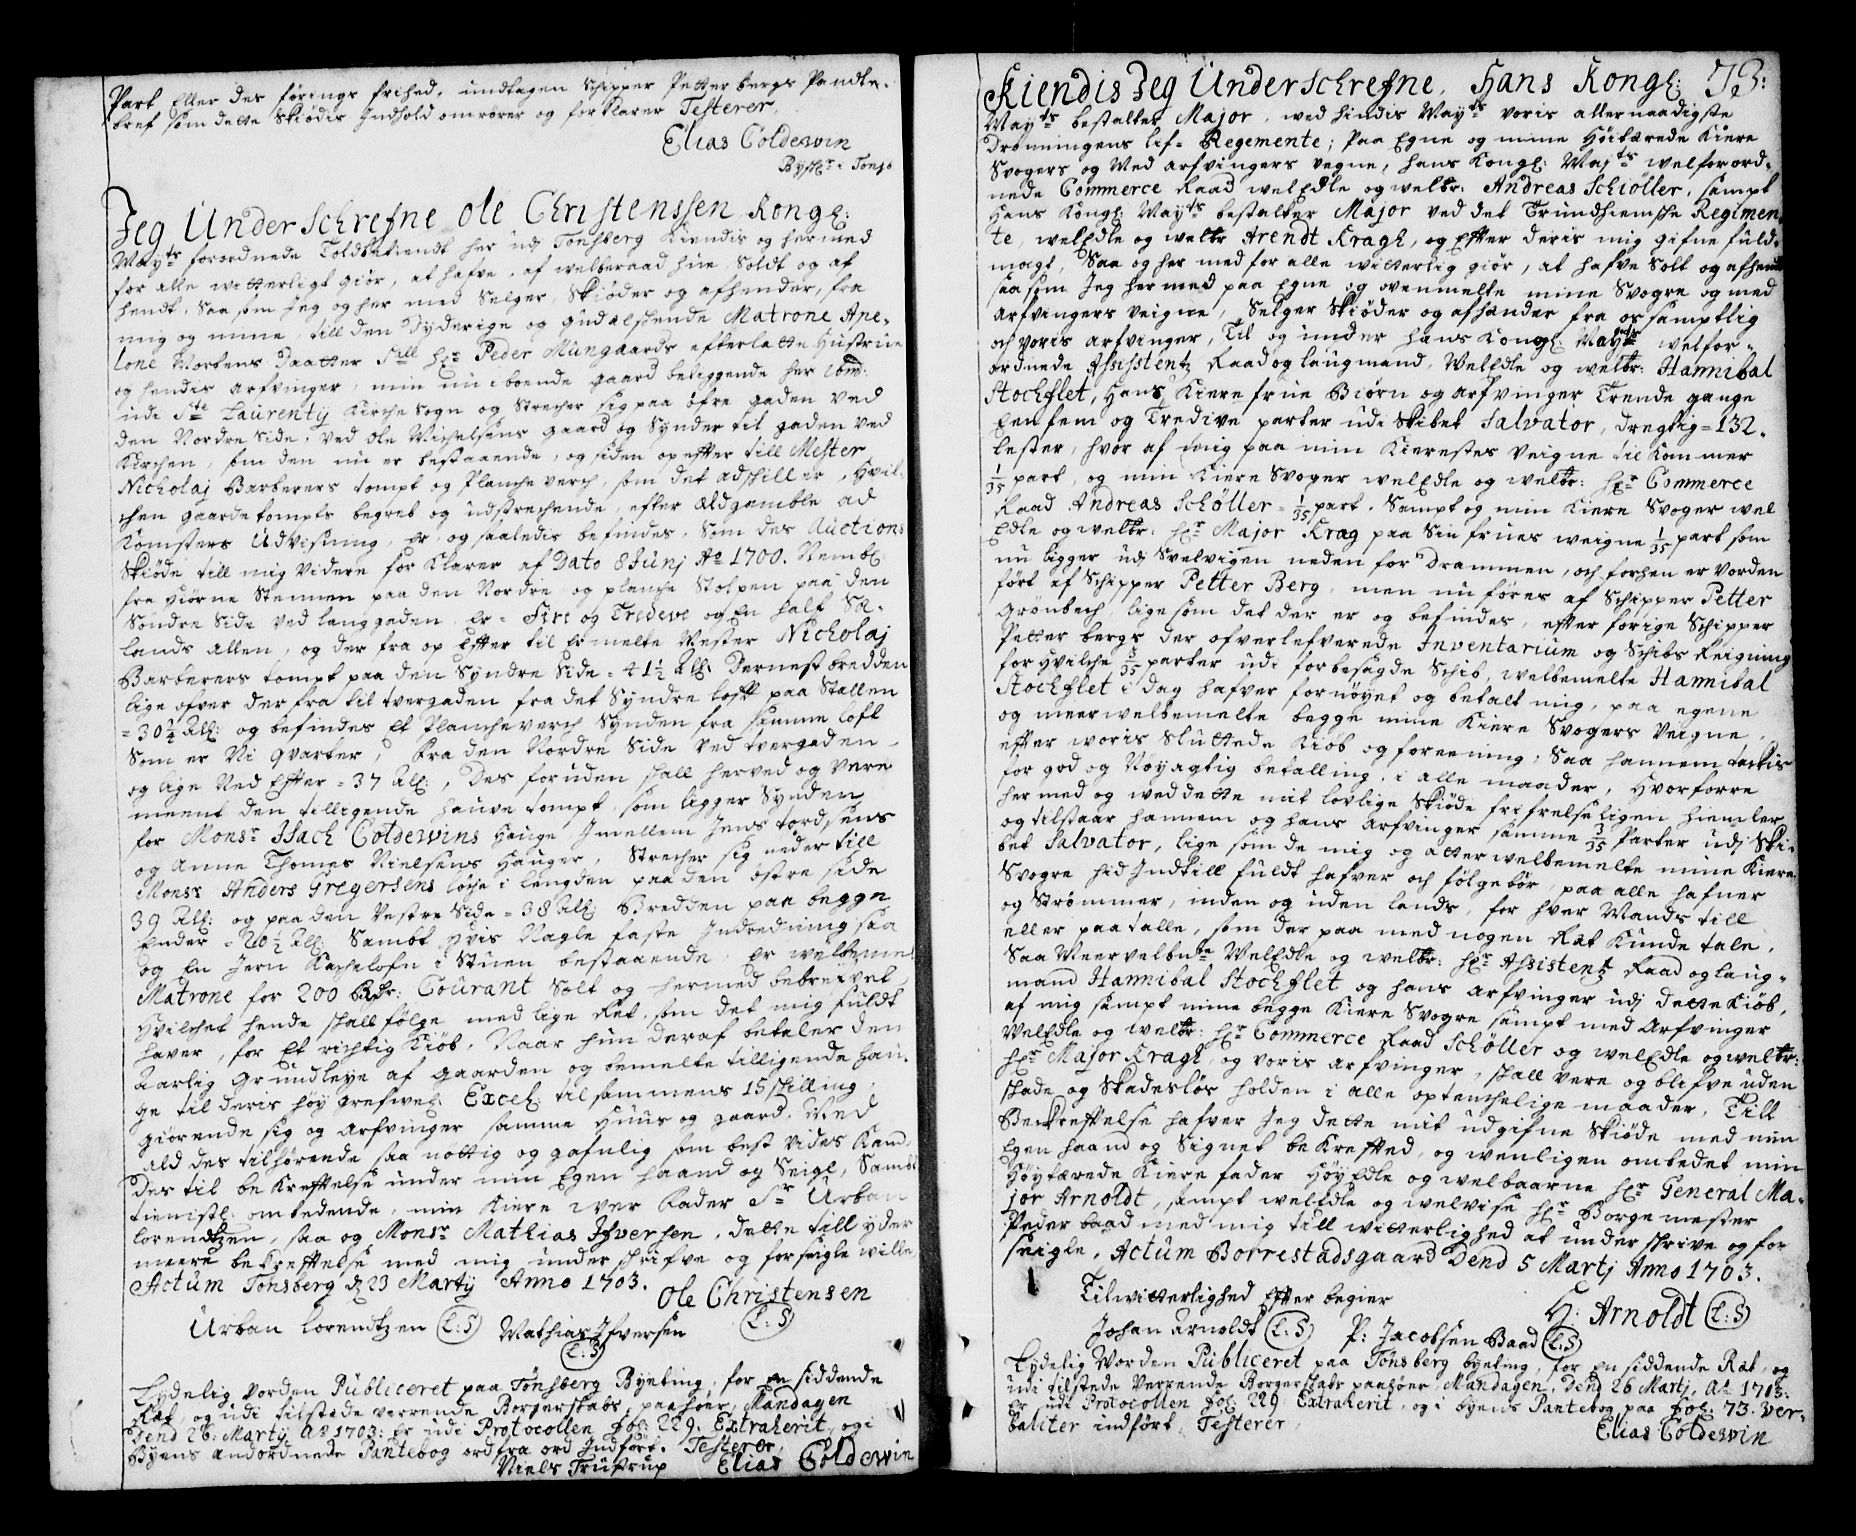 Part Eller des förings frihed, undtagen Schipper Petter bergs Pandte,
bref som dette Skiödis Indhold omrörer og forklarer Testerer,
Elias Coldewin
Byfc: i Tonsb
Jeg Underschrefne Ole Christenssen Kongl:
Mayts forordnede Toldbetiendt her udj Tonsberg Kiendis og hermed
for alle witterligt giör, at hafve, af welberaad hue Soldt og af
hendt, Saa som Jeg og her med Selger, Skiöder og afhender, fra
mig og mine, till den Dyderige og gudelskende Matrone Ape,
lone Mortens Daatter Sill Hr Peder Mungaards efterlatte Hustrue
og hendis arfvinger, min nu iboende gaard beliggende her ibm:
udi Ste Laurentij Kirche Sogn og Strecher sig paa öfre gaden ved
den Nordre Side, ved Ole Michelsens gaard og Synder til gaden ved
Kirchen, som den nu er bestaaende, og siden op effter till Mester
Nicholaj Barberers tompt og Plancheverch, som det adskiller, Hvil,
chen gaardetompts begreb og udstrechende, efter Eldgamble ad
Komsters Udvisning, Er, og saaledis befindes, Som des Auctions
Skiöde till mig Videre for Klarer af Dato 8 Junj Ao 1700. Nembl:
fra hiörne Stennen paa den Nordre og planche Stolpen paa den
Söndre Side ved langgaden Er = Fire og Tredeve og En half Sæ,
lands allen, og der fra op Effter til Ermelte Mester Nicholaj
Barberers tompt paa den Syndre Side = 41½ All: Dernest bredden
lige ofver der fra til tvergaden fra det Syndre loft paa Stallen
= 30½ All: og befindes Et Plancheverch Synden fra samme loft
Som er Ni qvarter, Fra den Nordre Side ved tvergaden
og lige Ned Effter = 37 All:, Des foruden skall herved og vere
meent den tilligende hauve tompt som ligger Synden
for Monsr Isach Coldewins Hauge, Imellem Jens tordsens
og Anne Thomes Nielsens Hauger, Strecher sig neder till
Monsr Anders Gregersens löche i lengden paa den östre side
39 All: og paa den Vestre Side = 38 All: Bredden paa begge
Ender = 20½ All: Sambt Hvis Nagle faste Indredning saa
og En Jern Kachelofn i Stuen bestaaende, Er welbemelte
Matrone for 200 Rdr: Courant Solt og hermed bebrevet,
Hvilchet hende skall fölge med lige Ret, som det mig fuldt
haver, for Et richtig Kiöb, Naar hun deraf betaler den
Aarlig Grundleye af gaarden og bemelte tilligende Hau,
ge til deris höy grefvel: Excel: tilsammens 15 skilling,
giörende sig og Arfvinger samme Huus og gaard, Med
ald des tilhörende saa nöttig og gafnlig som best vides Kand,
Des til be Krefftelse under min Egen haand og Seigl, Sambt
tienistl: ombedende, min Kiere wer Fader Sr Urban
lorendtzen, saa og Monsr Mathias Ifversen, dette till yder
meere beKrefftelse med mig under skrifve og forseigle wille,
Actum Tonsberg d 23 Martij Anno 1703.
Ole Christensen
Urban Lorendtzen (L:S) Mathias Ifversen (L:S)
(L:S)
Lydelig vorden Publiceret paa Tönsberg Byeting, for En siddende
Ret, og udi tilstede verrende Borgerskabs paahöer, Mandagen
Dend 26: Martij Ao 1703: Er udi Protocollen fol: 229. Extraherit, og i
Byens andordnede Pantebog ord fra ord Indfört. Testerer,
Niels Trustrup Elias Coldewin
Kiendis Jeg Underschrefne, Hans Kongl: 73:
Mayts bestalter Major, ved hindis Mayts voris allernaadigste
Dronningens lif= Regemente; Paa Egne og mine Höitærede Kiere
Svogers og Med arfvingers vegne, Hans Kongl: Mayts welforord,
nede Commerce Raad welEdle og weltr: Andreas Schiöller, sampt
Hans Kongl: Mayts bestalter Major ved det Trundhiemske Regimen,
te, welEdle og weltr Arendt Kragh, og Effter deris mig gifne fuld,
magt, Saa og her med for alle witterlig giör, at hafve Solt og afhendt
saa som Jeg her med paa Egne og ovenmelte mine Svogre og med
Arfvingers Veigne, Selger Skiöder og afhænder fra os samptlig
och voris arfvinger, Til og under Hans Kongl: Mayts welfor,
ordnede Assistentz Raad og laugmand, WelEdle og weltr: Hannibal
Stochflet, Hans Kiere frue Biörn og arfvinger Trende gange
Een fem og Tredive parter udi Skibet Salvator, dregtig = 132,
lester, hvor af mig paa min Kierestes Veigne til Kommer
1/35 part, og min Kiere Svoger welEdle og weltr: Hr Commerce
Raad Andreas Schöller = 1/35 part, Sampt og min Kiere Svoger wel
Edle og weltr: Hr Major Krag paa Sin frues weigne 1/35 part som
nu ligger udj Svelvigen neden for Drammen, och forhen er Vorden
fört af Schipper Petter Berg, men nu föres af Schipper Petter
Grönbech, lige som det der er og befindes, effter forige Schipper
Petter bergs der ofverlefverede Inventarium og Schibs Reigning
for Hvilche 3/35 parter udi forbesagde Schib, welbemelte Hannibal
Stochflet i dag hafver fornöyet og betalt mig, paa egene
og meerwelbemelte begge mine Kiere Svogers Veigne,
effter woris Sluttede Kiöb og foreening, Saa hannem tackis
for god og Nöyagtig betalling, i alle maader, Hvorforre
her med og wed dette mit lovlige Skiöde fri frelseligen hiemler
og tilstaar hannem og hans Arfvinger samme 3/35 Parter udj Ski,
bet Salvator, lige som de mig og atter welbemelte mine Kiere
Svogre hid Indtill fuldt hafver och fölge bör, paa alle hafner
og Strömmer, inden og uden lands, for hver Mands till
eller paa talle, som der paa med nogen Ret Kunde tale,
Saa Meervelbmte WelEdle og weltr: Hr Assistentz Raad og laug,
mand Hannibal Stochflet og hans arfvinger udj dette Kiöb,
af mig sampt mine begge Kiere Svogre sampt med Arfvinger
WelEdle og weltr: Hr Commerce Raad Schöller og welEdle og weltr:
Hr Major Kragh, og voris arfvinger, skall vere og blifve uden
skade og Skadeslös holden i alle optenchelige maader, Till
Bekreffelse hafver Jeg dette mit udgifne Skiöde med min
Egen haand og Signet beKrefted, og wenligen ombedet min
Höytærede Kiere fader HöyEdle og welbaarne Hr General Ma,
jor Arnoldt, sampt welEdle og welvise Hr Borgemester
Peder baad med mig till witterlighed at underskrive og for
seigle, Actum Borrestadsgaard Dend 5 Martj Anno 1703.
Til witterlighed Effter begier
H: Arnoldt (L:S)
Johan Arnoldt (L:S) P: Jacobsen Baad (L:S)
Lydelig Vorden Publiceret paa Tönsberg byeting, for En siddende Ret, og
udi tilstede Verrende Borgerskabs paahöer, Mandagen, Dend 26 Martj, Ao 1703:
Er udi Protocollen fol: 229. Extraherit, og i byens Pantebog paa fol: 73. Ver,
baliter indfört, Testerer,
Elias Coldewin